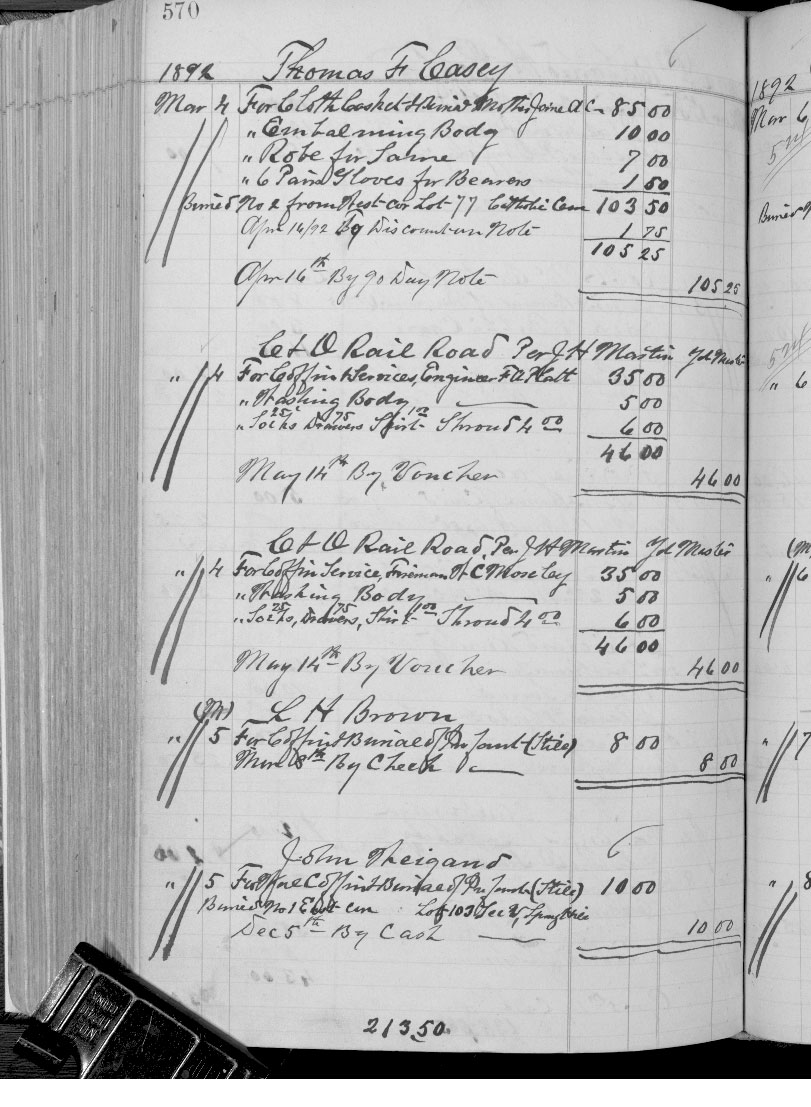 570
1892 Thomas F Casey
Mar 4 For Cloth Casket & Burial Mother Jane A C 85 00
" Embalming Body 10 00
" Robe for Same 7 00
" 6 Pairs Gloves for Bearers 1 50
Buried No 2 from Rest cor Lot 77 Catholic Cem 103 50
Apr 16/92 To Discount on Note 1 75
105 25
Apr 16th By 90 Day Note 105 25
C & O Rail Road Per J H Martin Yd Master
" 4 For Coffin & Services, Engineer F A 35 00
" Washing Body 5 00
" Socks 25 Drawers 75 Shirt 1 00 Shroud 4 00 6 00
46 00
May 14th By Voucher 46 00
C & O Rail Road, Per J H Martin Yd Master
" 4 For Coffin Service, Fireman H C Moseley 35 00
" Washing Body 5 00
" Socks 25, Drawers 75, Shirt 1 00 Shroud 4 00 6 00
46 00
May 14th By Voucher 46 00
(M) L H Brown
" 5 For Coffin & Burial of Infant (Still) 8 00
Mar 8th By Check 8 00
John Weigand
" 5 For Coffin & Burial of Infant (Still) 10 00
Buried No 1 East cor Lot 103 Sec 2, Spring Hill
Dec 5th By Cash 10 00
213 50
1892
Mar 6
5rd
Buried
5rd
" 6
(M
" 6
" 7
" 8